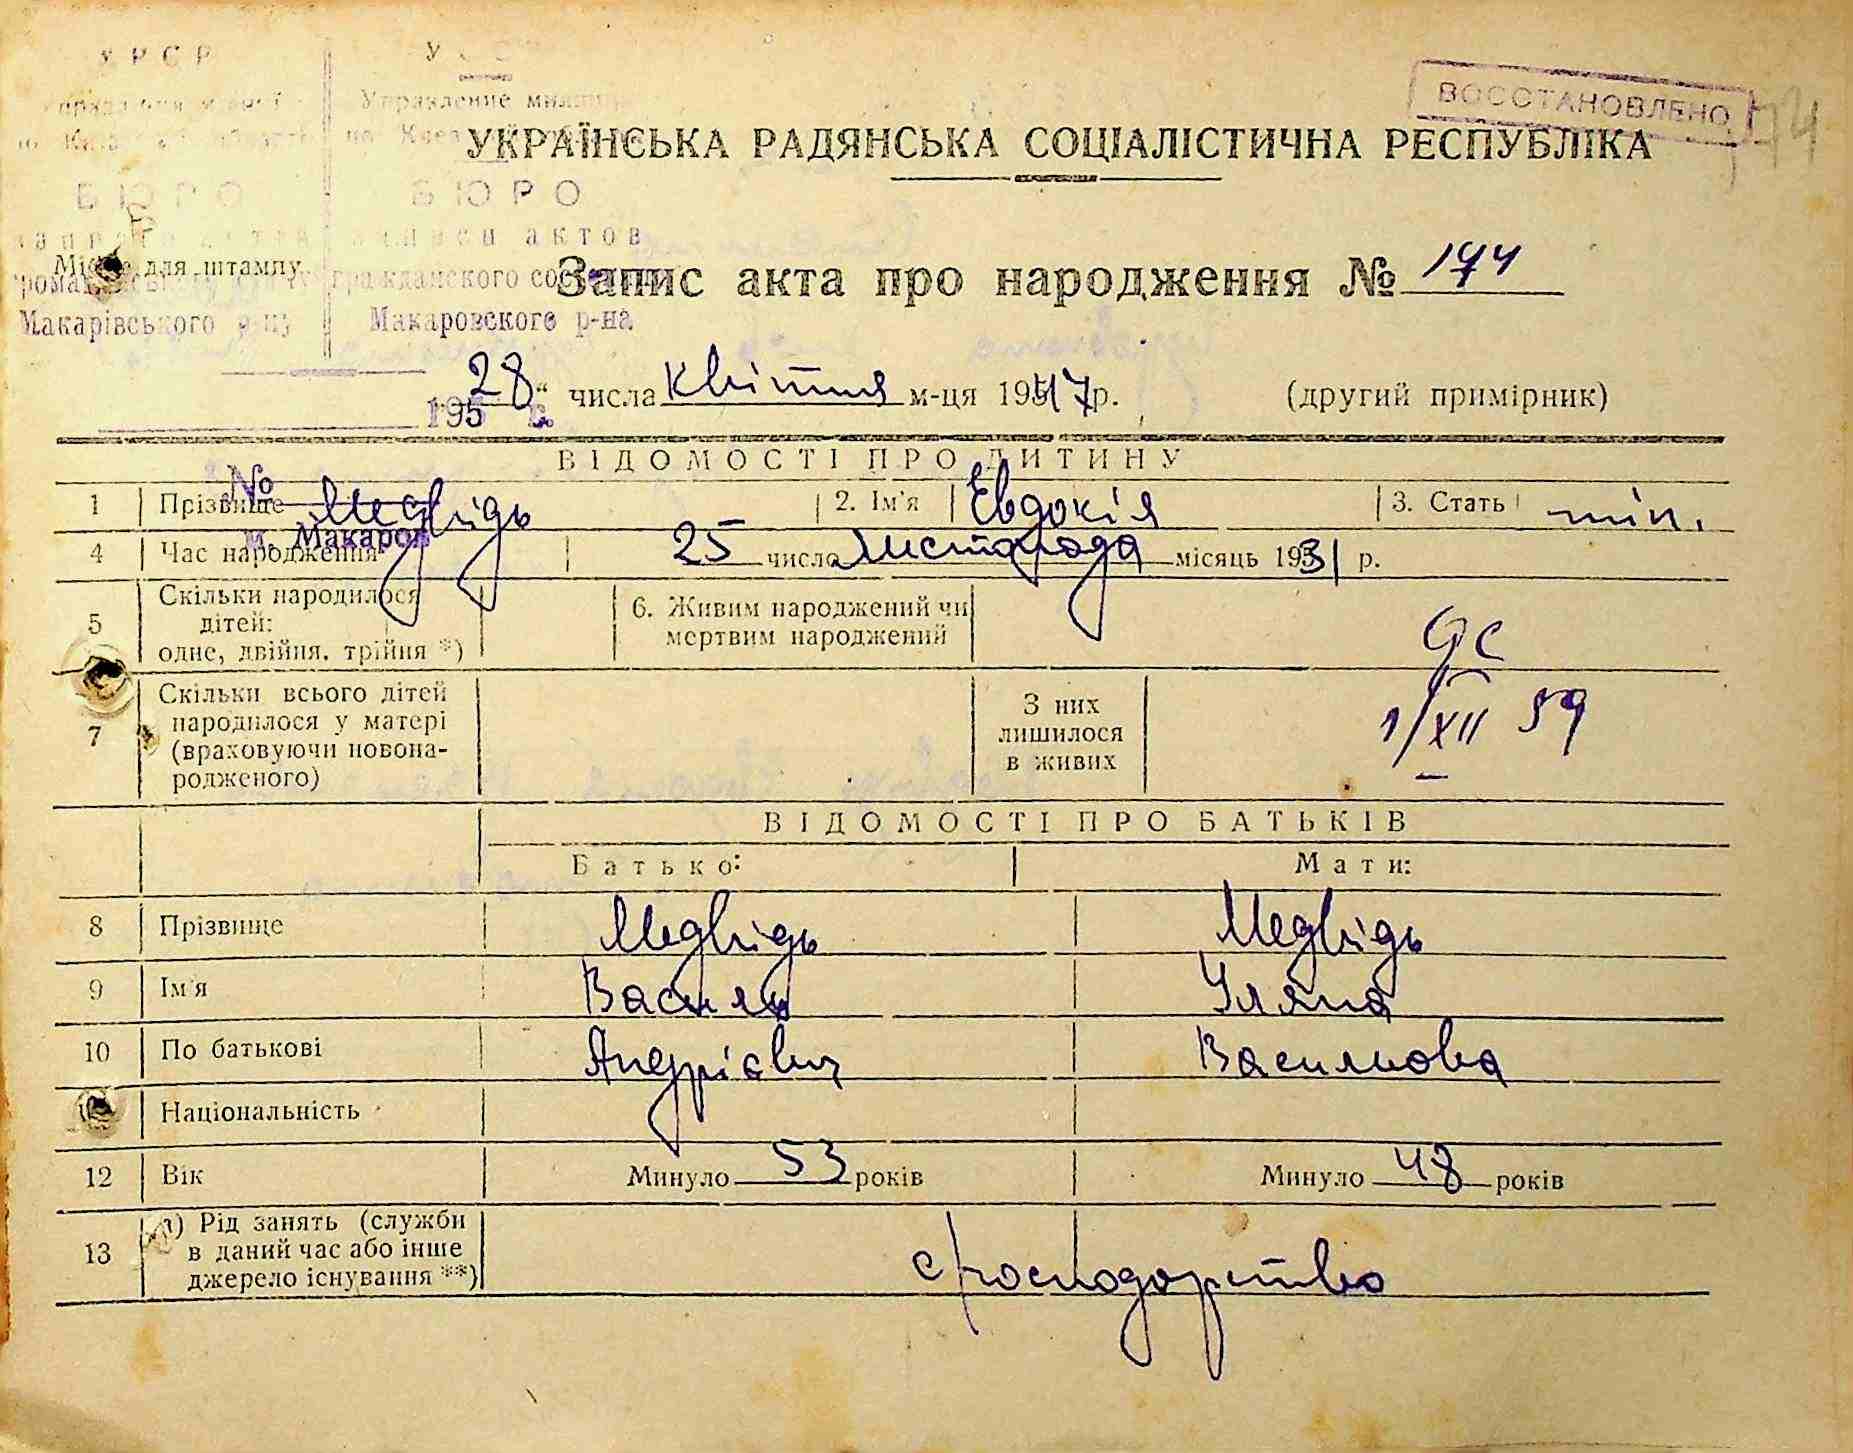 УРСР
Управление милиции
ВОССТАНОВЛЕНО
УКРАЇНСЬКА РАДЯНСЬКА СОЦІАЛІСТИЧНА РЕСПУБЛІКА
БЮРО БЮРО
записи актов
Місце для штампу
гражданского
Запис акта про народження № 174
Макарівського р-ну Макаровского р-на
28 " числа квітня м-ця 1947 р. (другий примірник)
195 г.
ВІДОМОСТІ ПРО ДИТИНУ
№
1 Прізвище Медвідь 2. Ім'я Євдокія 3. Стать жін.
м. Макаров
4 Час народження 25 число листопада місяць 1931 р.
5 Скільки народилося дітей: одне, двійня, трійня *) 6. Живим народжений чи мертвим народжений
7 Скільки всього дітей народилося у матері (враховуючи новонародженого) З них лишилося в живих
1/XII 59
ВІДОМОСТІ ПРО БАТЬКІВ
Батько: Мати:
8 Прізвище Медвідь Медвідь
9 Ім'я Василь Уляна
10 По батькові Андрієвич Васильовна
Національність
12 Вік Минуло 53 років Минуло 48 років
13 1) Рід занять (служби
в даний час або інше
джерело існування **)
с/господарство